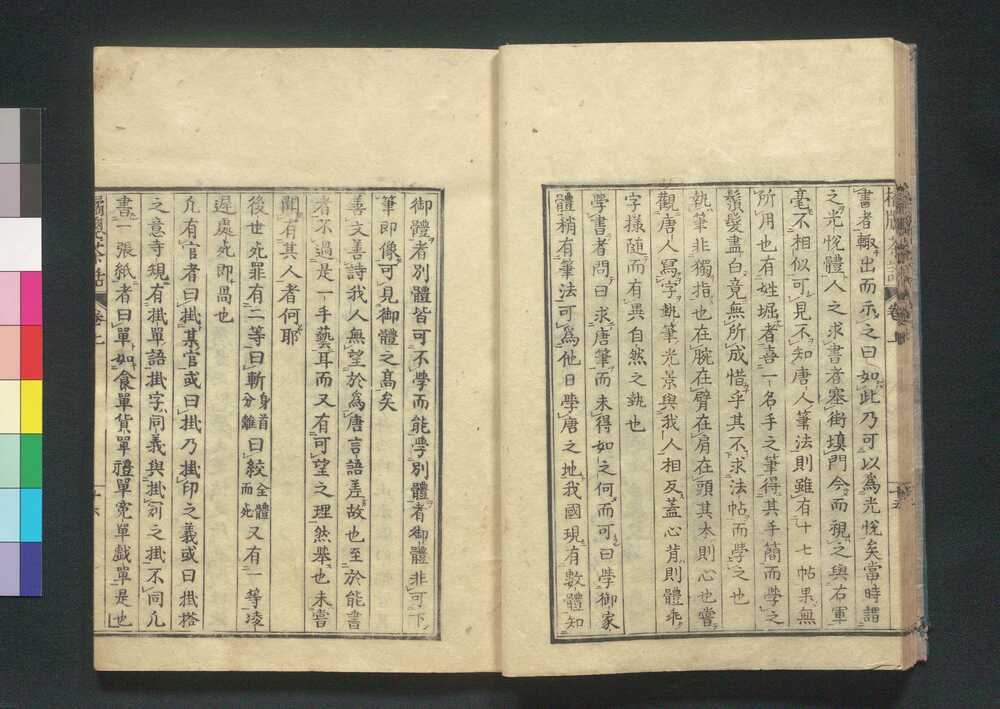 書者輙出而示之曰如此乃可以爲光悅矣當時謂
之光悅體人之求書者塞街塡門今而視之與右軍
毫不相似可見不知唐人筆法則雖有十七帖果無
所用也有姓堀者喜一名手之筆得其手簡而學之
鬚髮盡白竟無所成惜乎其不求法帖而學之也
執筆非獨指也在腕在臂在肩在頭其本則心也嘗
觀唐人寫字執筆光景與我人相反蓋心背則體乖
字樣隨而有異自然之埶也
學書者問曰求唐筆而未得如之何而可曰學御家
體稍有筆法可爲他日學唐之地我國現有數體知
卷上
御體者別體皆可不學而能學別體者御體非可下
筆即像可見御體之高矣
善文善詩我人無望於爲唐言語差故也至於能書
者不過是一手藝耳而又有可望之理然舉世未嘗
聞有其人者何耶
後世死罪有二等曰斬身首分離曰絞全體而死又有一等凌
遲處死即咼也
凢有官者曰掛某官或曰掛乃掛印之義或曰掛搭
之意寺規有掛單語掛字同義與掛可之掛不同凢
書一張紙者曰單如食單貨單禮單寃單戲單是也
橘牕茶話 卷上 十六